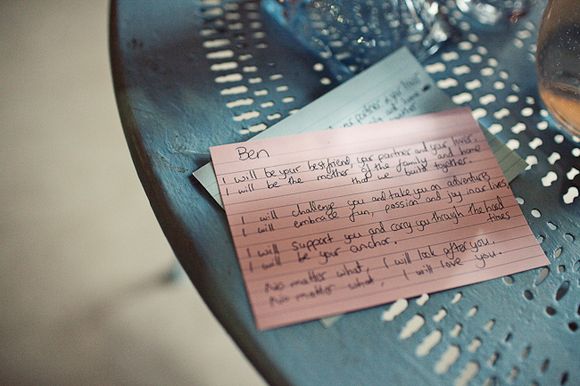 Ben
I will be your bestfriend, your partner and your lover.
I will be the mother of the family and home
that we build together.
I will challenge you and take you on adventures
I will embrace fun, passion and joy in our lives
I will support you and carry you through the hard
times
I will be your anchor.
No matter what, I will look after you.
No matter what, I will love you.
your partner and your lover